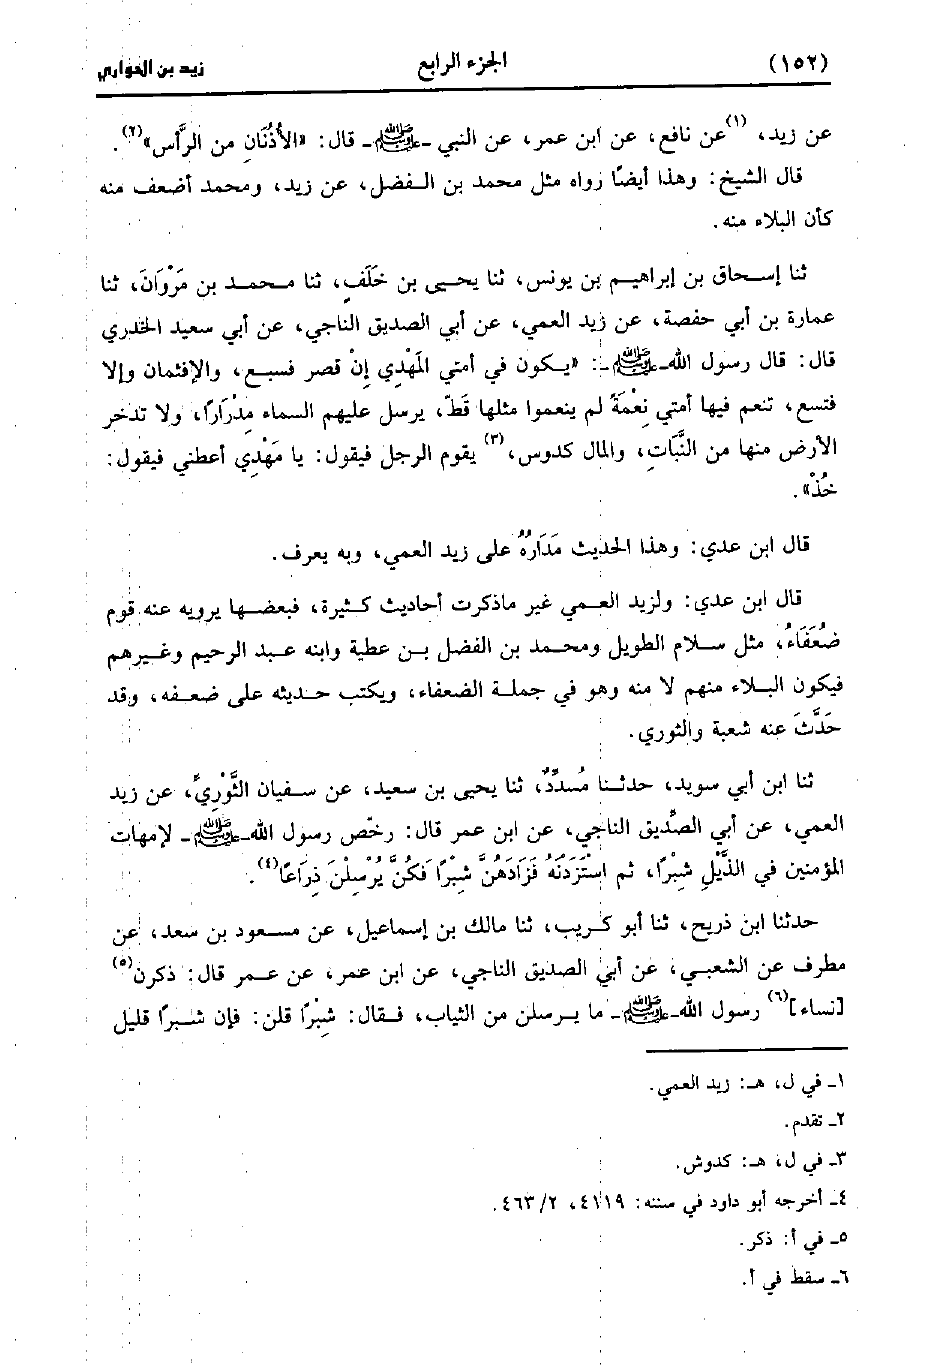 (١٥٢) الجزء الرابع زيد بن الحواري
عن زيد، (١)عن نافع، عن ابن عمر، عن النبي ـ ﷺ ـ قال: «الأُذُنَانِ من الرَّأس»(٢).
قال الشيخ: وهذا أيضًا رواه مثل محمد بن الفضل، عن زيد، ومحمد أضعف منه
كأن البلاء منه.
ثنا إسحاق بن إبراهيم بن يونس، ثنا يحيى بن خَلَفٍ، ثنا محمد بن مَرْوَانَ، ثنا
عمارة بن أبي حفصة، عن زيد العمي، عن أبي الصديق الناجي، عن أبي سعيد الخدري
قال: قال رسول الله ـ ﷺ ـ: «يكون في أمتي المَهْدِي إنْ قصر فسبع، والإفثمان وإلا
فتسع، تنعم فيها أمتي نِعْمَةً لم ينعموا مثلها قَطّ، يرسل عليهم السماء مِدْرَارًا، ولا تدخر
الأرض منها من النَّبَاتِ، والمال كدوس،(٣) يقوم الرجل فيقول: يا مَهْدِي أعطني فيقول:
خُذْ».
قال ابن عدي: وهذا الحديث مَدَارُهُ على زيد العمي، وبه يعرف.
قال ابن عدي: ولزيد العمي غير ماذكرت أحاديث كثيرة، فبعضها يرويه عنه قوم
ضُعَفَاءُ، مثل سلام الطويل ومحمد بن الفضل بن عطية وابنه عبد الرحيم وغيرهم
فيكون البلاء منهم لا منه وهو في جملة الضعفاء، ويكتب حديثه على ضعفه، وقد
حَدَّثَ عنه شعبة والثوري.
ثنا ابن أبي سويد، حدثنا مُسدِّدٌ، ثنا يحيى بن سعيد، عن سفيان الثَّوْرِيِّ، عن زيد
العمي، عن أبي الصِّديق الناجي، عن ابن عمر قال: رخّص رسول الله ـ ﷺ ـ لإمهات
المؤمنين في الذَّيْلِ شِبْرًا، ثم اسْتَزَدْنَهُ فَزَادَهُنَّ شِبْرًا فَكُنَّ يُرْسِلْنَ ذِرَاعًا(٤).
حدثنا ابن ذريح، ثنا أبو كريب، ثنا مالك بن إسماعيل، عن مسعود بن سعد، عن
مطرف عن الشعبي، عن أبي الصديق الناجي، عن ابن عمر، عن عمر قال: ذكرن(٥)
[نساء](٦) رسول الله ـ ﷺ ـ ما يرسلن من الثياب، فقال: شِبْرًا قلن: فإن شبرًا قليل
١ـ في ل، هـ: زيد العمي.
٢ـ تقدم.
٣ـ في ل، هـ: كدوش.
٤ـ أخرجه أبو داود في سننه: ٤١١٩، ٢/ ٤٦٣.
٥ـ في أ: ذكر.
٦ـ سقط في أ.